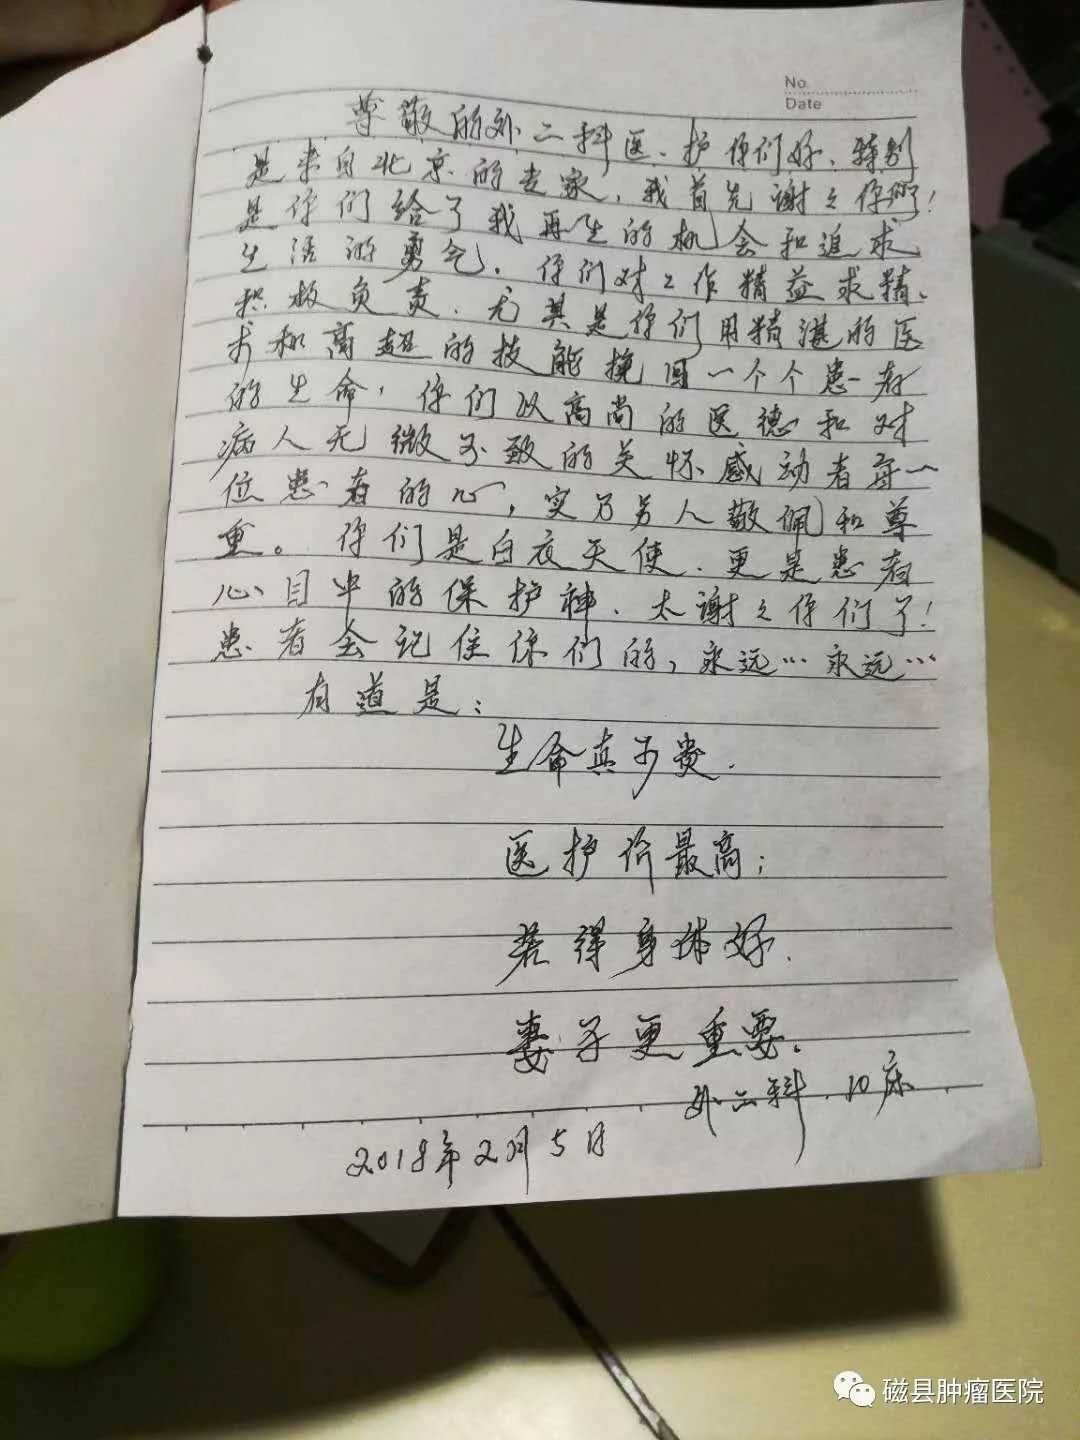 No.
Date
尊敬的外二科医、护你们好、特别
是来自北京的专家,我首先谢之你们!
是你们给了我再生的机会和追求
生活的勇气。你们对工作精益求精、
积极负责、尤其是你们用精湛的医
术和高超的技能挽回一个个患者
的生命,你们以高尚的医德和对
病人无微不致的关怀感动者每一
位患者的心,实乃另人敬佩和尊
重。你们是白衣天使、更是患者
心目中的保护神、太谢之你们了!
患者会记住你们的,永远…永远…
有道是:
生命真可贵、
医护价最高;
若得身体好、
妻子更重要。
外二科、10床
2018年2月5日
磁县肿瘤医院